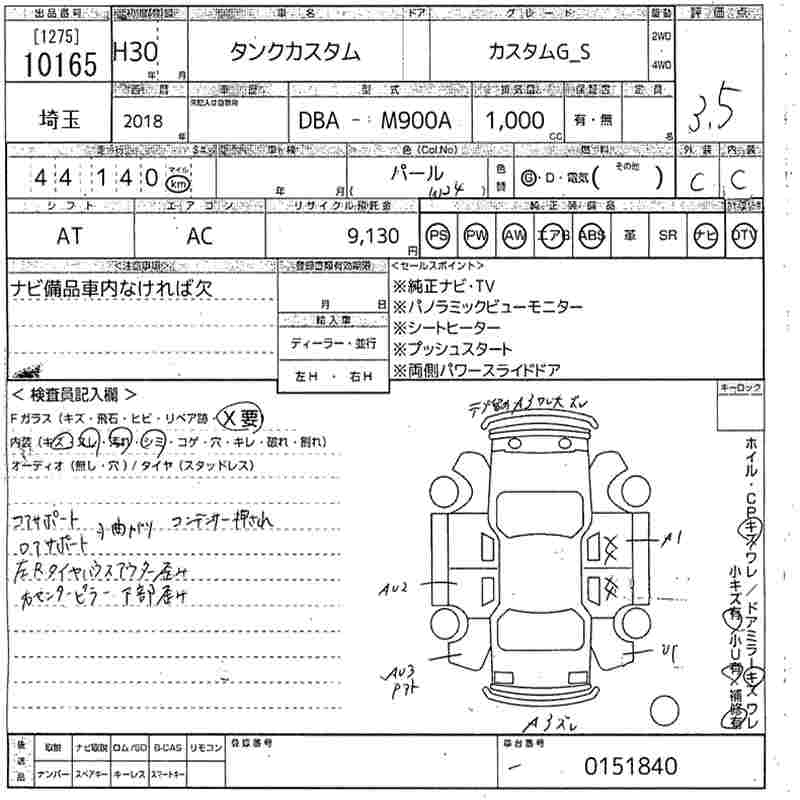 出品番号 初度登録 車名 ドア グレード 駆動 評価点
[1275]
10165 H30 年 月 タンクカスタム カスタムG_S 2WD ・ 4WD 3.5
西暦 車歴 型式 排気量 車検 定員
埼玉 2018 年 DBA - M900A 1,000 CC 有・無 名
走行 車検 色(Col.No) 燃料 外装 内装
44140 マイル km 年 月 パール (W24) 色替 G・D・電気( その他 ) C C
シフト エアコン リサイクル預託金 純正装備品
AT AC 9,130 円 PS PW AW エアB ABS 革 SR ナビ DTV
<注意事項> 登録書類有効期限 <セールスポイント>
ナビ備品車内なければ欠
月 日
輸入車
ディーラー・並行
左H ・ 右H
※純正ナビ・TV
※パノラミックビューモニター
※シートヒーター
※プッシュスタート
※両側パワースライドドア
< 検査員記入欄 > キーロック
Fガラス (キズ・飛石・ヒビ・リペア跡・X要)
内装 (キズ・スレ・汚れ・シミ・コゲ・穴・キレ・破れ・割れ)
オーディオ (無し・穴) / タイヤ (スタッドレス)
コアサポート
ロアサポート 曲がり コンデンサー押され
左Rタイヤハウスアウター歪み
右センターピラー下部歪み
A3ワレ大ズレ
A1
AU2
AU3
U1
A3ズレ
ホイル・CPキズワレ / ドアミラーキズワレ
小キズ有 小U有 補修有
後送品 取説 ナビ取説 ロム/SD B-CAS リモコン 登録番号 車台番号
ナンバー スペアキー キーレス スマートキー - 0151840